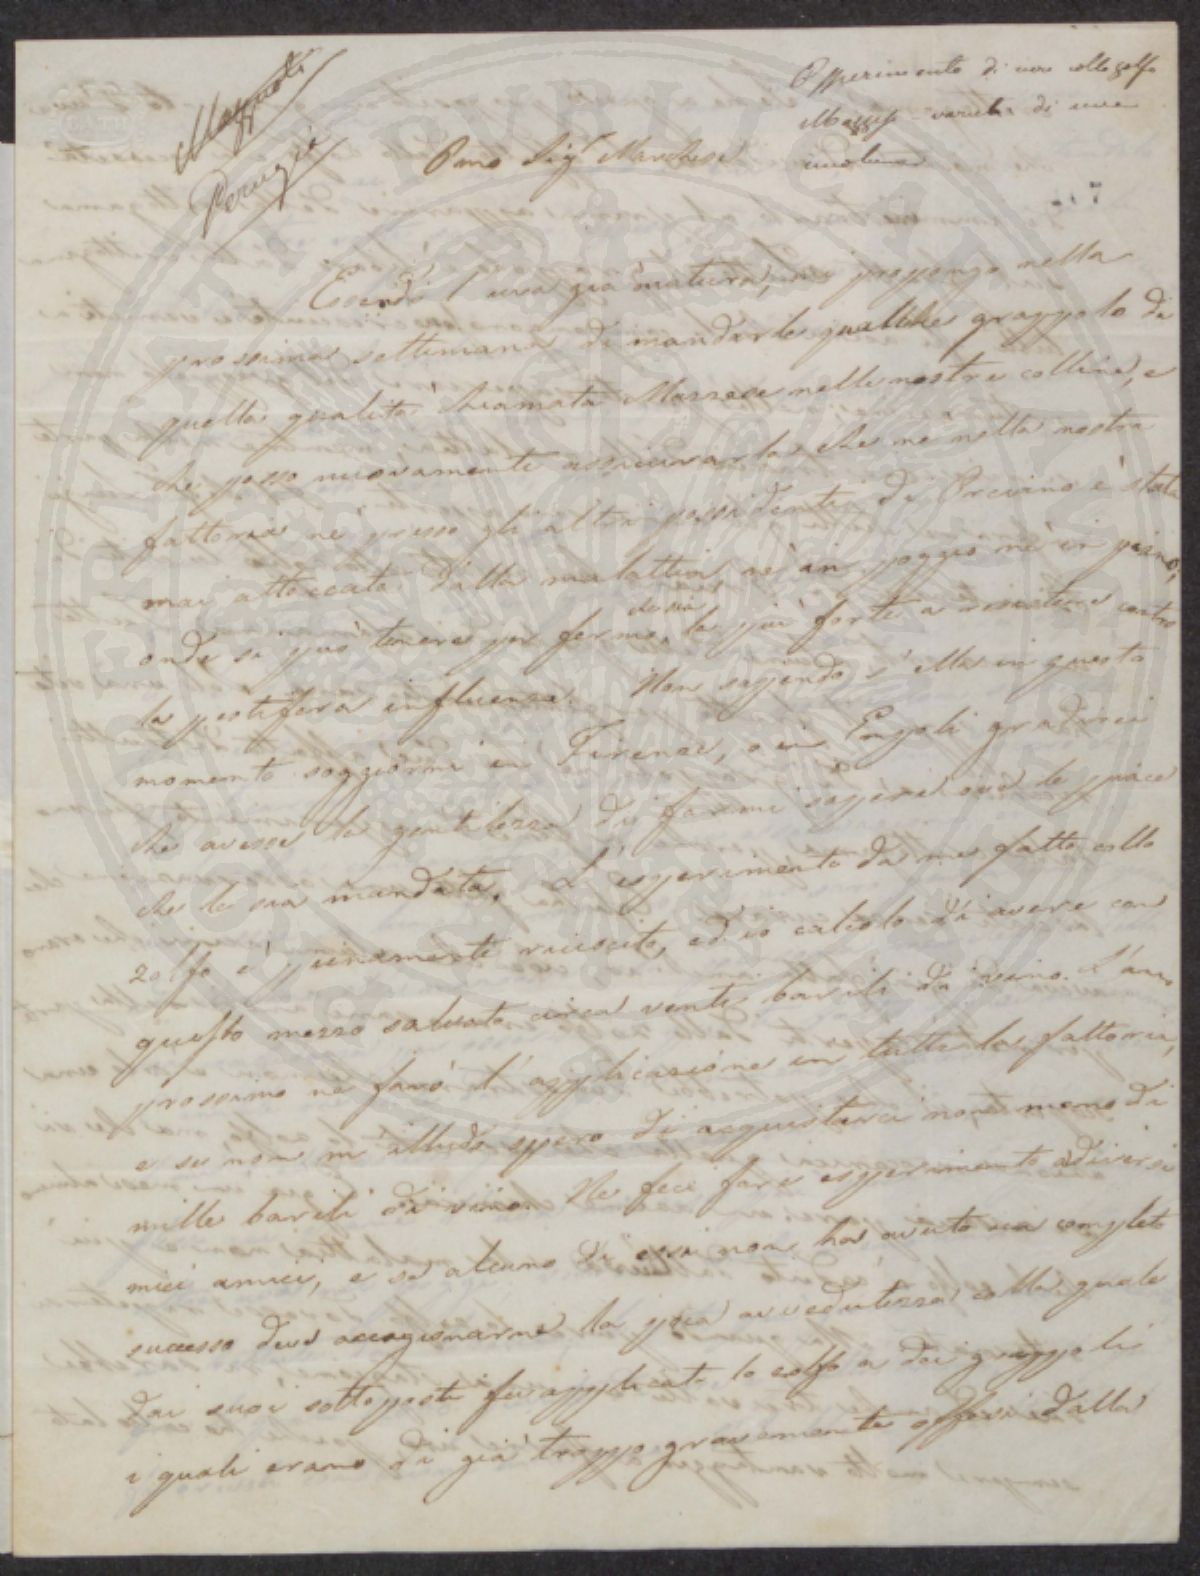 Mazzuoli
Perugia
Esperimento di uve collo zolfo
Mazzese - varietà di uva
7
Pmo Sigr Marchese
Essendo l'uva già matura, mi propongo nella
prossima settimana di mandarle qualche grappolo di
quella qualità chiamata Mazzese nelle nostre colline, e
che posso nuovamente assicurarla che nè nella nostra
fattoria nè presso gli altri possidenti di Orciano è stata
mai attaccata dalla malattia, nè in poggio nè in piano,
onde si può tenere per fermo la più forte a resistere contro
la pestifera influenza. Non sapendo s'Ella in questo
momento soggiorni in Firenze, o in Empoli gradirei
che avesse la gentilezza di farmi sapere ove le piace
che le sia mandata. L'esperimento da me fatto collo
zolfo è pienamente riuscito, ed io calcolo di avere con
questo mezzo salvato circa venti barili di vino. L'anno
prossimo ne farò l'applicazione in tutta la fattoria,
e se non m'illudo spero di acquistarci non meno di
mille barili di vino. Ne feci fare esperimento a diversi
miei amici, e se alcuno di essi non ha avuto un completo
successo deve accagionarne la poca avvedutezza colla quale
dai suoi sottoposti fu applicato lo zolfo a dei grappoli
i quali erano di già troppo gravemente offesi dalla